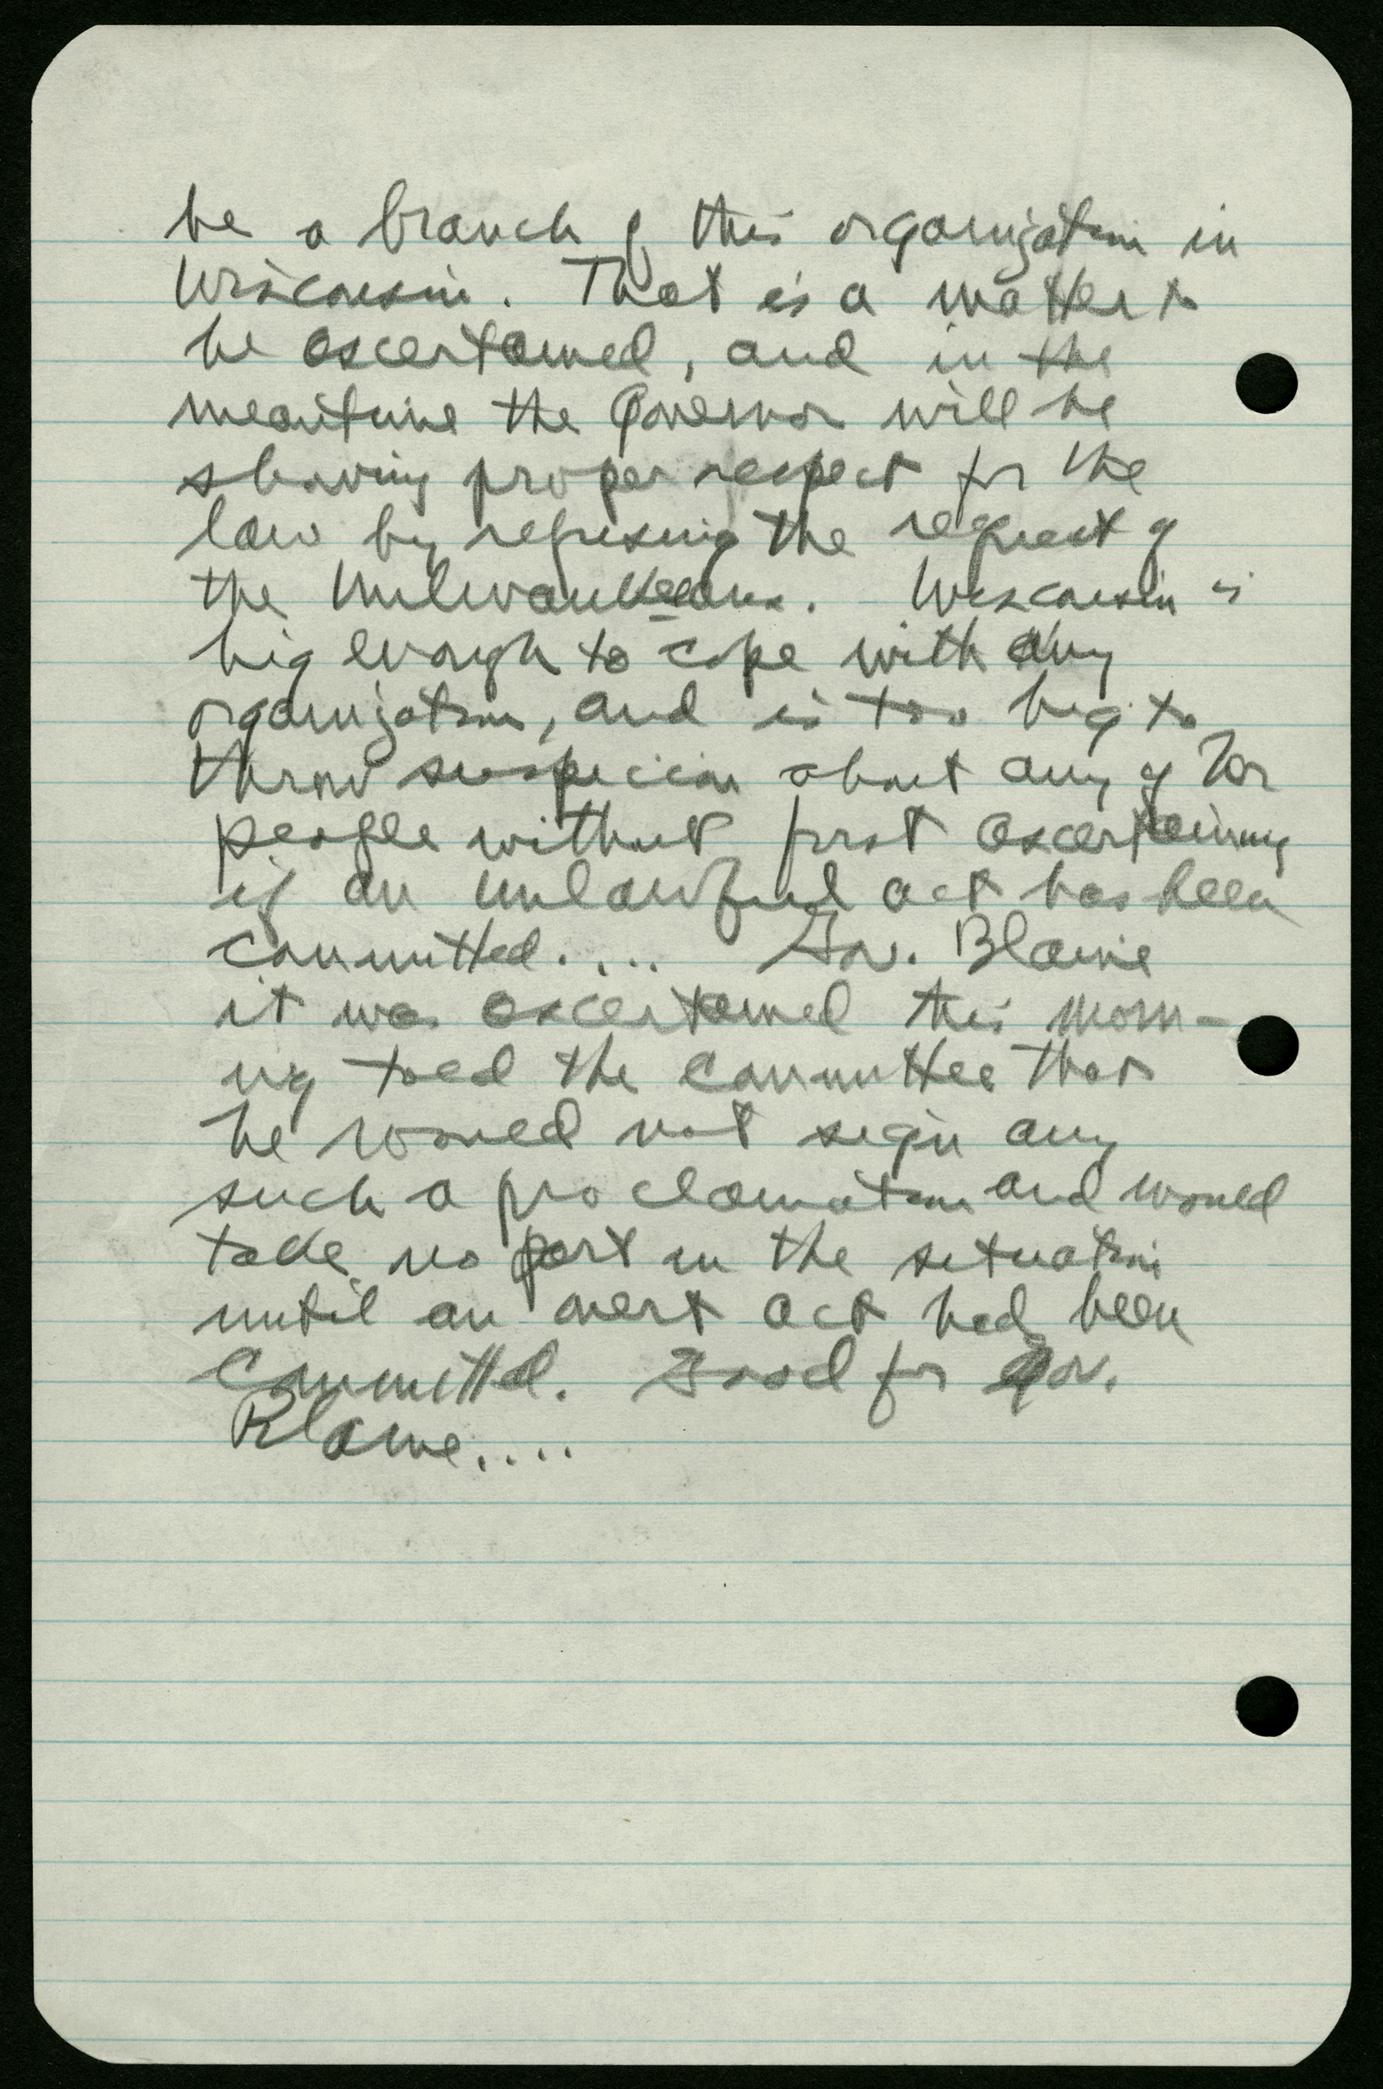 be a branch of this organization in
Wisconsin. That is a matter to
be ascertained, and in the
meantime the Governor will be
showing proper respect for the
law by refusing the request of
the Milwaukeeans. Wisconsin is
big enough to cope with any
organization, and is too big to
throw suspicion about any of her
people without first ascertaining
if an unlawful act has been
committed.... Gov. Blaine
it was ascertained this morn-
ing told the committee that
he would not sign any
such a proclamation and would
take no part in the situation
until an overt act had been
committed. Good for Gov.
Blaine....